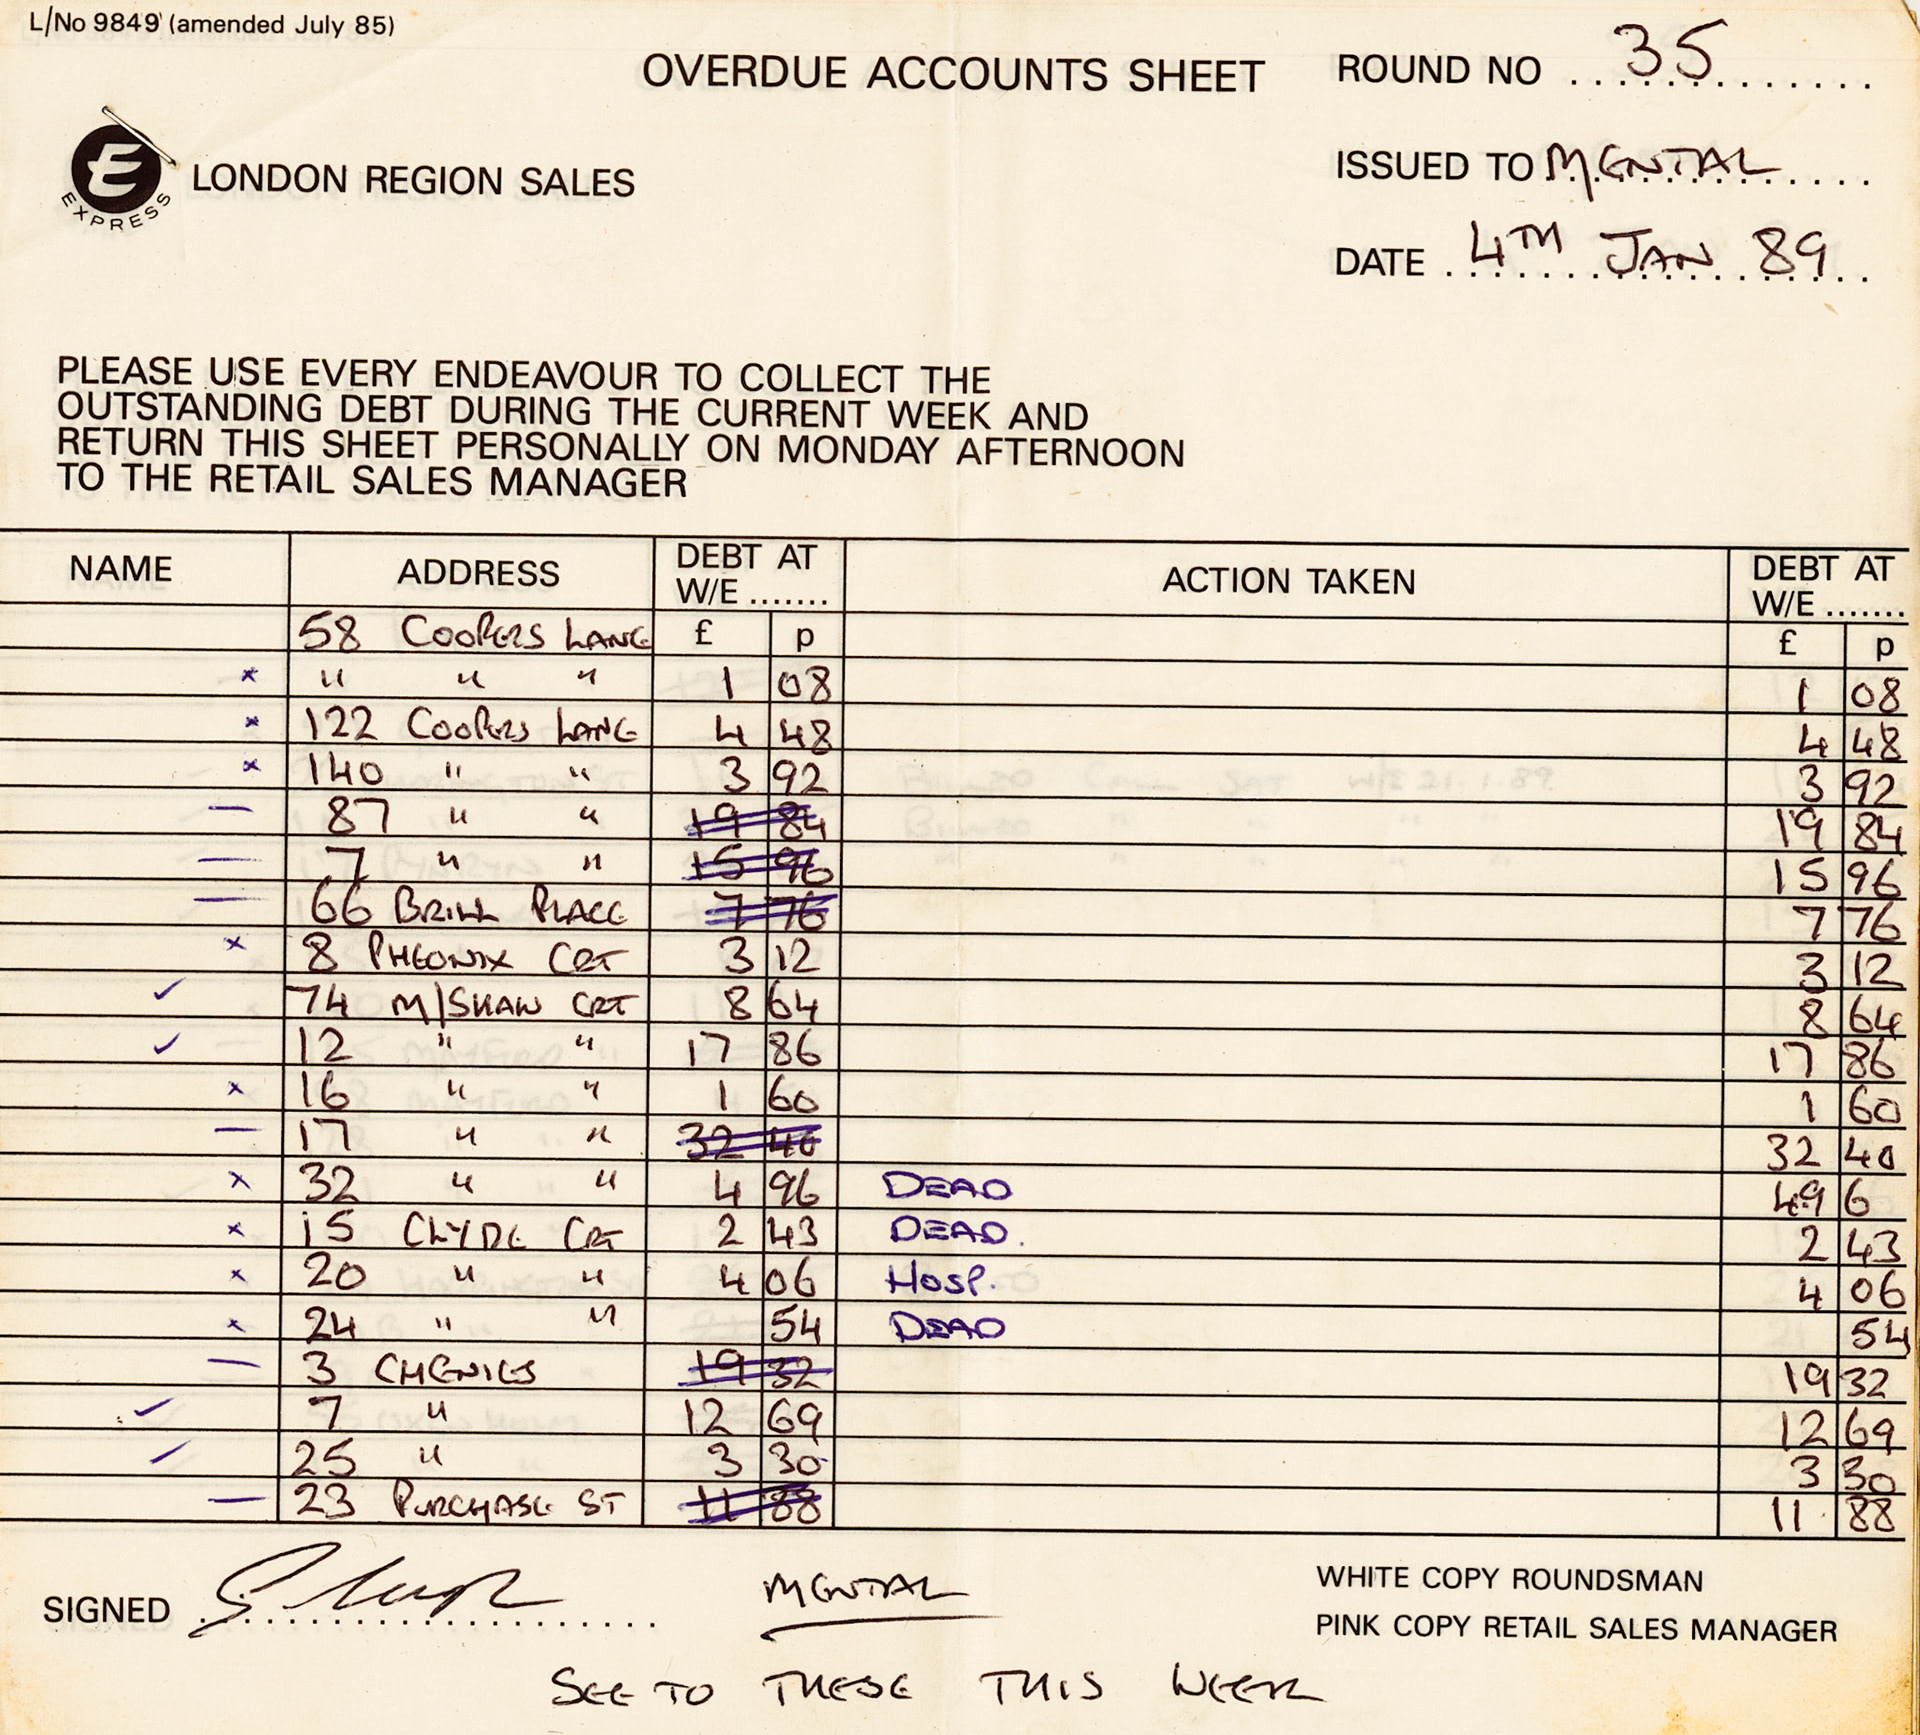 L/No 9849 (amended July 85)
OVERDUE ACCOUNTS SHEET
ROUND NO 35
E EXPRESS
LONDON REGION SALES
ISSUED TO MENTAL
DATE 4TH JAN 89
PLEASE USE EVERY ENDEAVOUR TO COLLECT THE
OUTSTANDING DEBT DURING THE CURRENT WEEK AND
RETURN THIS SHEET PERSONALLY ON MONDAY AFTERNOON
TO THE RETAIL SALES MANAGER
NAME ADDRESS DEBT AT W/E ....... ACTION TAKEN DEBT AT W/E .......
58 COOPERS LANE £ p £ p
x " " " 1 08 1 08
x 122 COOPERS LANE 4 48 4 48
x 140 " " 3 92 3 92
— 87 " " 19 84 19 84
— 7 " " 15 96 15 96
— 66 BRILL PLACE 7 76 7 76
x 8 PHEONIX CRT 3 12 3 12
✓ 74 M/SHAW CRT 8 64 8 64
✓ 12 " " 17 86 17 86
x 16 " " 1 60 1 60
— 17 " " 32 40 32 40
x 32 " " 4 96 DEAD 49 6
x 15 CLYDE CRT 2 43 DEAD. 2 43
x 20 " " 4 06 HOSP. 4 06
x 24 " " 54 DEAD 54
— 3 CHENIES 19 32 19 32
✓ 7 " 12 69 12 69
✓ 25 " 3 30 3 30
— 23 PURCHASE ST 11 88 11 88
SIGNED
MENTAL
WHITE COPY ROUNDSMAN
PINK COPY RETAIL SALES MANAGER
SEE TO THESE THIS WEEK